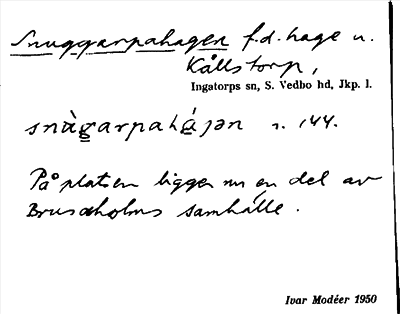 Snuggarpahagen f.d. hage u.
Källstorp,
Ingatorps sn, S. Vedbo hd, Jkp. l.
snàgarpahájən r. 144.
På platsen ligger nu en del av
Brusaholms samhälle.
Ivar Modéer 1950